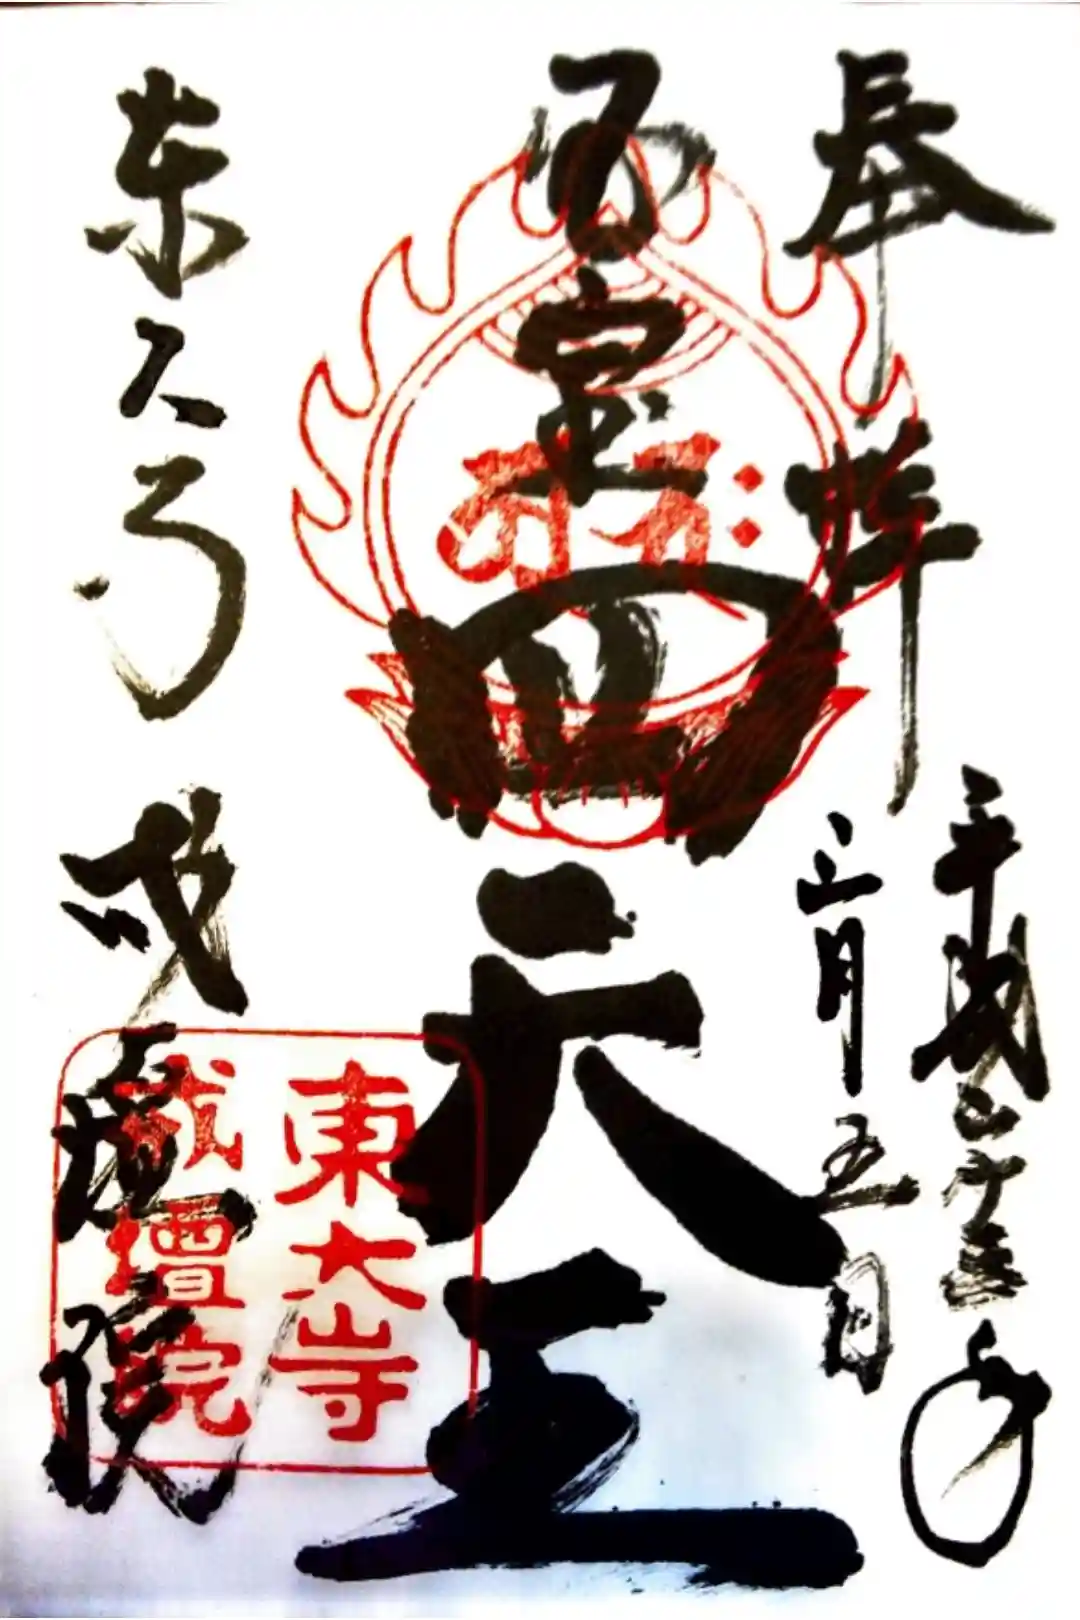 奉拝
平成二十 年
三月五日
宝
四天王
東大寺
戒壇院
東大寺
戒壇院